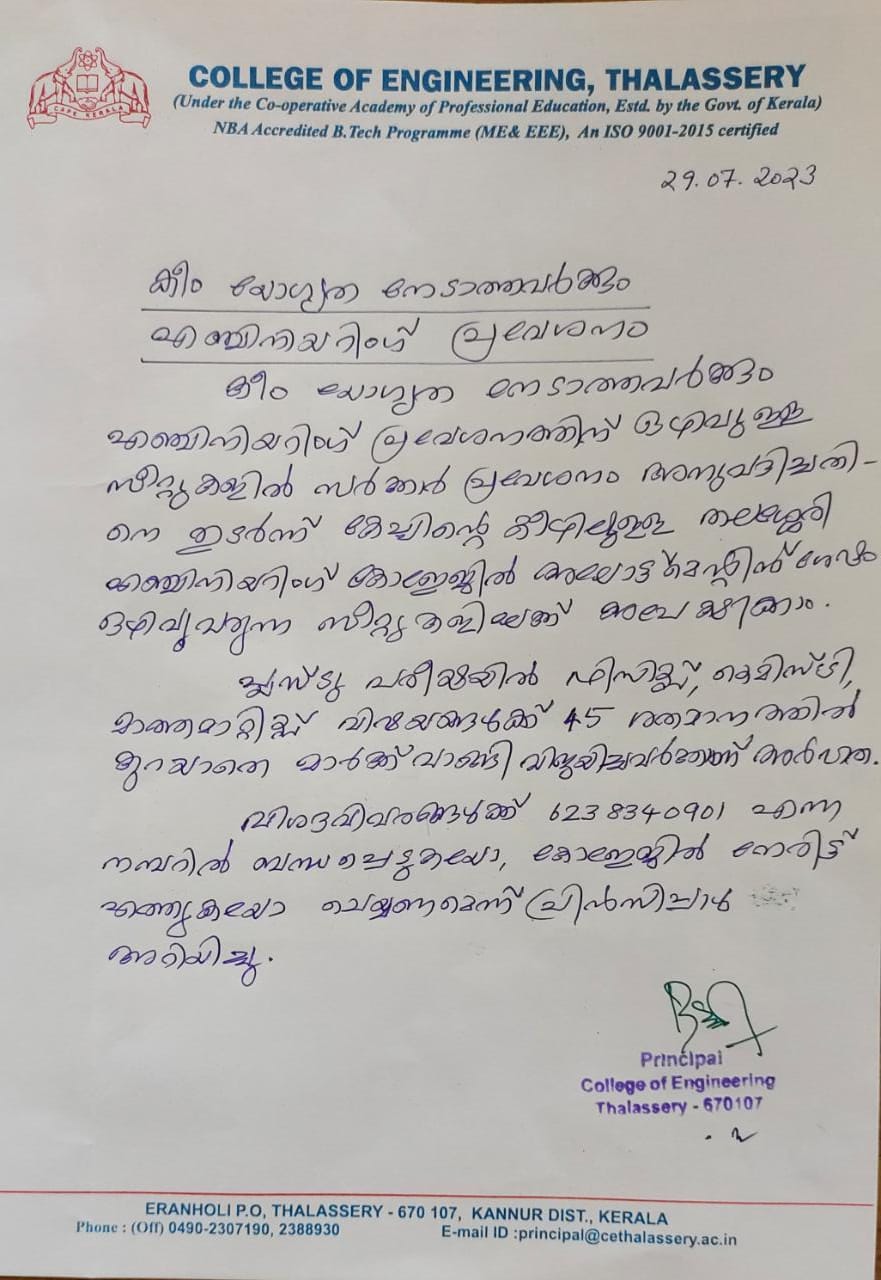 CAPE KERALA
COLLEGE OF ENGINEERING, THALASSERY
(Under the Co-operative Academy of Professional Education, Estd. by the Govt. of Kerala)
NBA Accredited B.Tech Programme (ME& EEE), An ISO 9001-2015 certified
29.07.2023
കീം യോഗ്യത നേടാത്തവർക്കും
എഞ്ചിനിയറിംഗ് പ്രവേശനം
കീം യോഗ്യത നേടാത്തവർക്കും
എഞ്ചിനിയറിംഗ് പ്രവേശനത്തിന് ഒഴിവുള്ള
സീറ്റുകളിൽ സർക്കാർ പ്രവേശനം അനുവദിച്ചതി-
നെ തുടർന്ന് കേപ്പിന്റെ കീഴിലുള്ള തലശ്ശേരി
എഞ്ചിനിയറിംഗ് കോളേജിൽ അലോട്ട്മെന്റിന് ശേഷം
ഒഴിവുവരുന്ന സീറ്റുകളിലേക്ക് അപേക്ഷിക്കാം.
പ്ലസ്ടു പരീക്ഷയിൽ ഫിസിക്സ്, കെമിസ്ട്രി,
മാത്തമാറ്റിക്സ് വിഷയങ്ങൾക്ക് 45 ശതമാനത്തിൽ
കുറയാതെ മാർക്ക് വാങ്ങി വിജയിച്ചവർക്കാണ് അർഹത.
വിശദവിവരങ്ങൾക്ക് 6238340901 എന്ന
നമ്പറിൽ ബന്ധപ്പെടുകയോ, കോളേജിൽ നേരിട്ട്
എത്തുകയോ ചെയ്യണമെന്ന് പ്രിൻസിപ്പാൾ
അറിയിച്ചു.
Principal
College of Engineering
Thalassery - 670107
ERANHOLI P.O, THALASSERY - 670 107, KANNUR DIST., KERALA
Phone : (Off) 0490-2307190, 2388930 E-mail ID :principal@cethalassery.ac.in